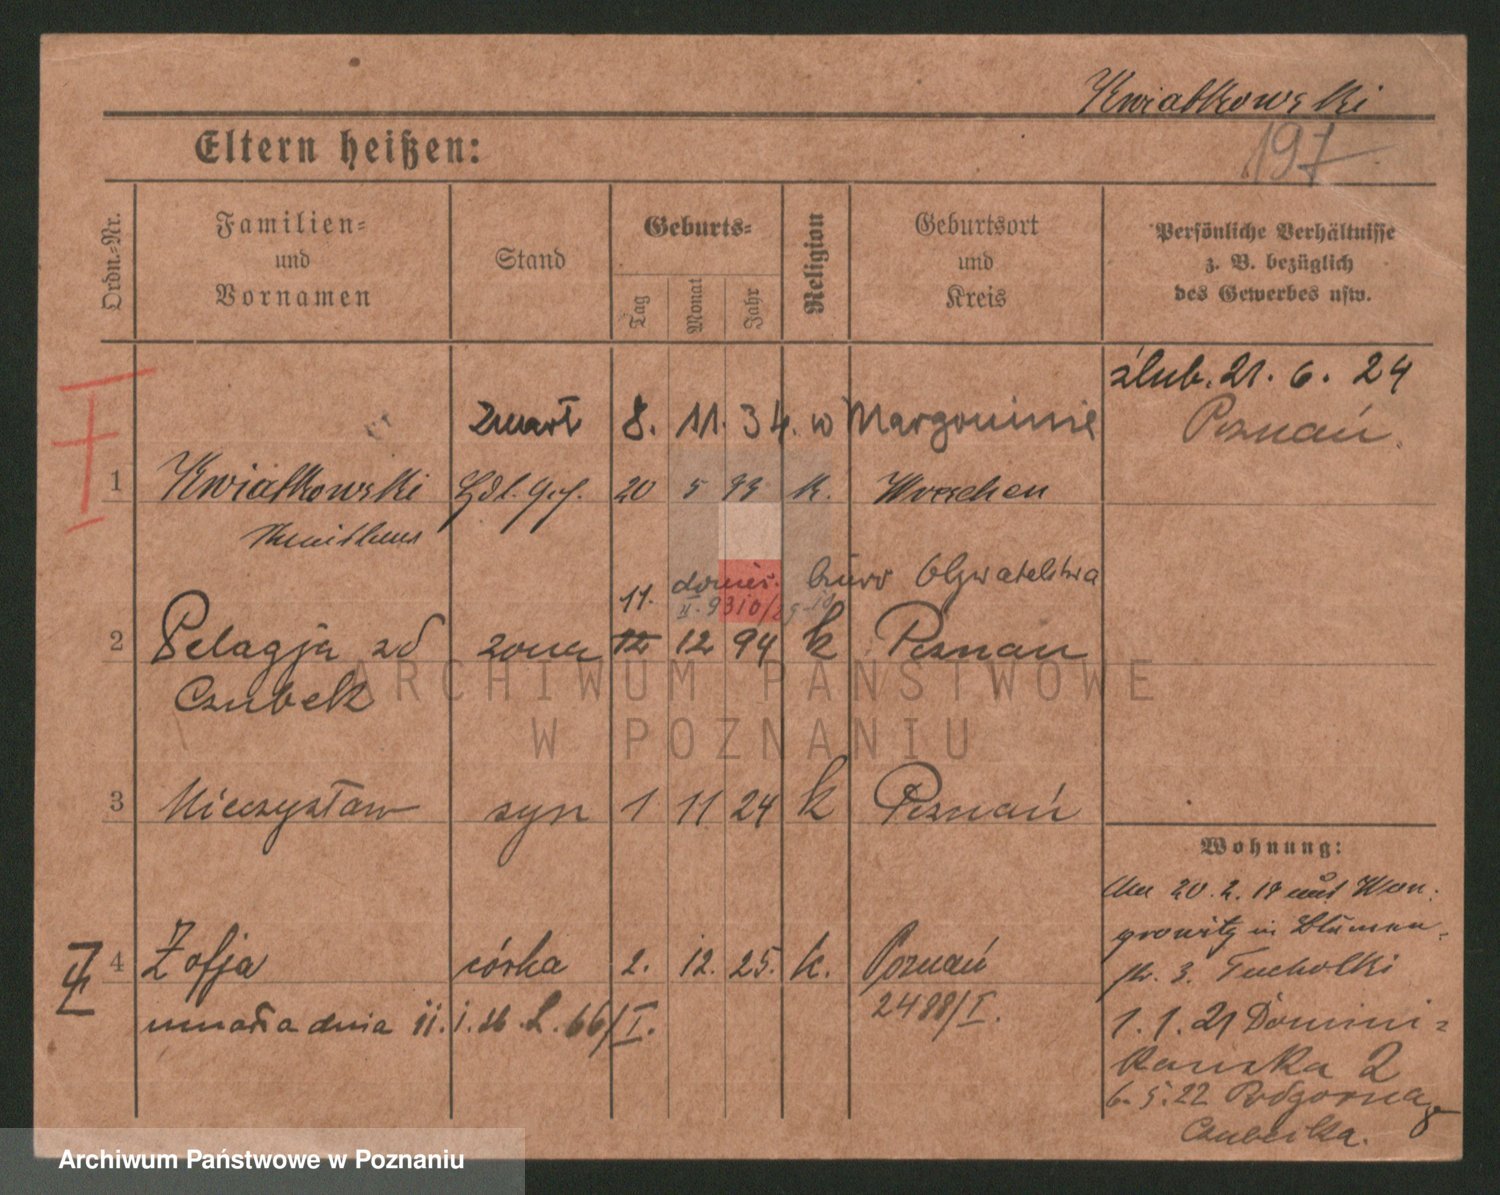 Kwiatkowski
197
Eltern heißen:
Ordn.-Nr.
Familien- und Vornamen
Stand
Geburts-
Tag
Monat
Jahr
Religion
Geburtsort und Kreis
Persönliche Verhältnisse z. B. bezüglich des Gewerbes usw.
ślub. 21. 6. 24
Poznań.
Zmarł 8. 11. 34. w Margoninie
1 Kwiatkowski Hdl. Geh. 20 5 93 k. Wreschen
11. donies. biuro Obywatelstwa
2 Pelagja zd żona 12 12 94 k Poznań
Czubek
ARCHIWUM PAŃSTWOWE
W POZNANIU
3 Mieczysław syn 1 11 24 k Poznań
Wohnung:
Am 20. 2. 19 aus Won-
growitz in Blumen-
str. 3. Tucholki
4 Zofja córka 2. 12. 25. k. Poznań
2488/I.
umarła dnia 11. 1. 26. L. 66/I.
1. 1. 21 Domini-
kańska 2
6. 5. 22 Podgorna 8
Archiwum Państwowe w Poznaniu